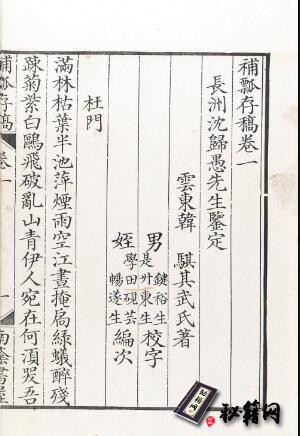 補瓢存稿卷一
長洲沈歸愚先生鑒定
雲東韓 騏其武氏著
男 鍵裕生 是升東生 校字
姪 學田硯芸 暢遂生 編次
杜門
滿林枯葉半池萍煙雨空江晝掩扃綠蟻醉殘
疎菊紫白鷗飛破亂山青伊人宛在何須哭吾
補瓢存稿
卷一
一
秘籍网